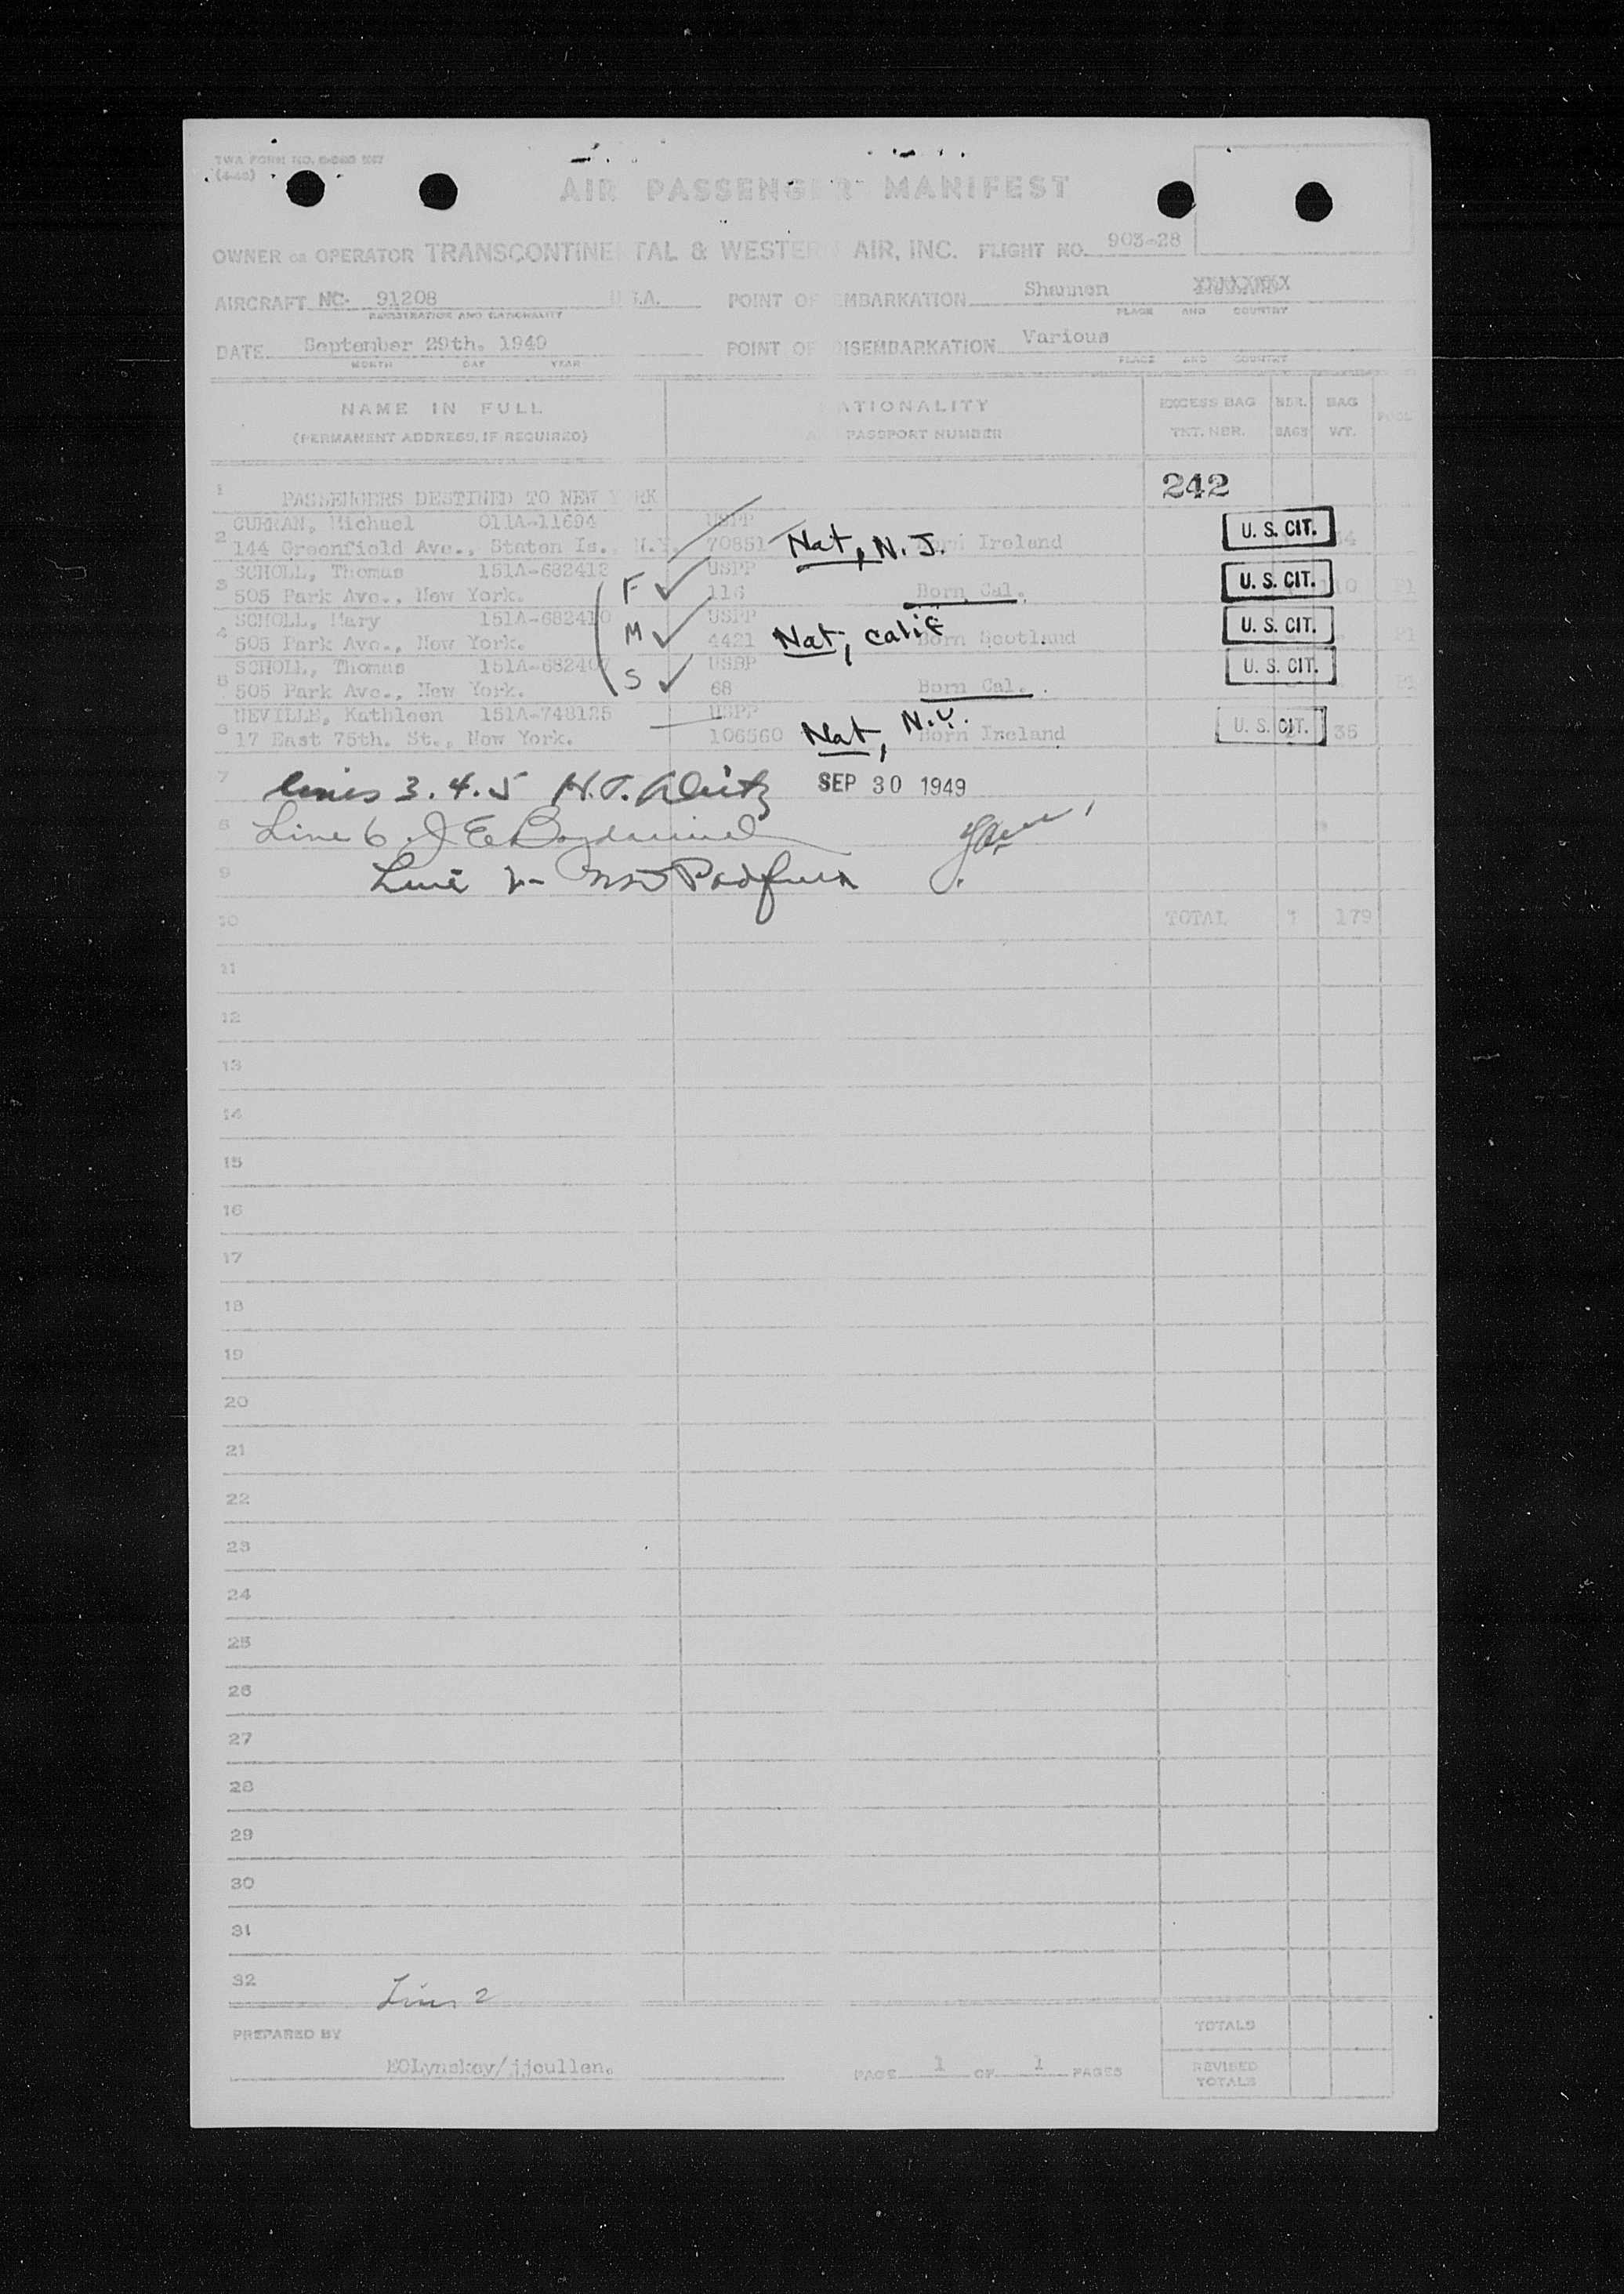 TWA FORM NO.
AIR PASSENGER MANIFEST
OWNER OR OPERATOR TRANSCONTINENTAL & WESTERN AIR, INC. FLIGHT NO. 903-28
AIRCRAFT NC. 91208 U.S.A. POINT OF EMBARKATION Shannon
REGISTRATION AND NATIONALITY PLACE AND COUNTRY
DATE September 29th. 1949 POINT OF DISEMBARKATION Various
MONTH DAY YEAR PLACE AND COUNTRY
NAME IN FULL NATIONALITY EXCESS BAG NBR. BAG POOL
(PERMANENT ADDRESS, IF REQUIRED) PASSPORT NUMBER TKT. NBR. BAGS WT.
1 PASSENGERS DESTINED TO NEW YORK 242
CURRAN, Michael 011A-11694 USPP
2 144 Greenfield Ave., Staten Is. N.Y. 70851 Nat, N.J. Born Ireland U. S. CIT.
SCHOLL, Thomas 151A-682413 USPP
3 505 Park Ave., New York. F 116 Born Cal. U. S. CIT.
SCHOLL, Mary 151A-682410 USPP
4 505 Park Ave., New York. M 4421 Nat, Calif Born Scotland U. S. CIT.
SCHOLL, Thomas 151A-682407 USPP
5 505 Park Ave., New York. S 68 Born Cal. U. S. CIT.
NEVILLE, Kathleen 151A-748125 USPP
6 17 East 75th. St., New York. 106560 Nat, N.Y. Born Ireland U. S. CIT. 36
7 lines 3.4.5 SEP 30 1949
8 Line 6
9 Line
10 TOTAL 7 179
11
12
13
14
15
16
17
18
19
20
21
22
23
24
25
26
27
28
29
30
31
32 Line 2
PREPARED BY TOTALS
EOLynskey/jjcullen. PAGE 1 OF 1 PAGES REVISED
TOTALS